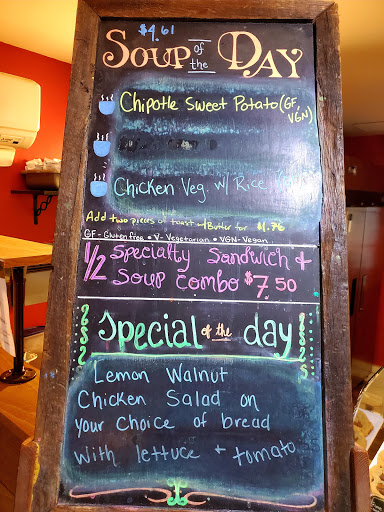 $4.61
Soup of the Day
Chipotle Sweet Potato (GF, VGN)
Chicken Veg. w/ Rice
Add two pieces of toast w/Butter for $1.76
GF-Gluten free • V-Vegetarian • VGN-Vegan
1/2 Specialty Sandwich +
Soup Combo $7.50
Special of the day
Lemon Walnut
Chicken Salad on
your choice of bread
with lettuce + tomato